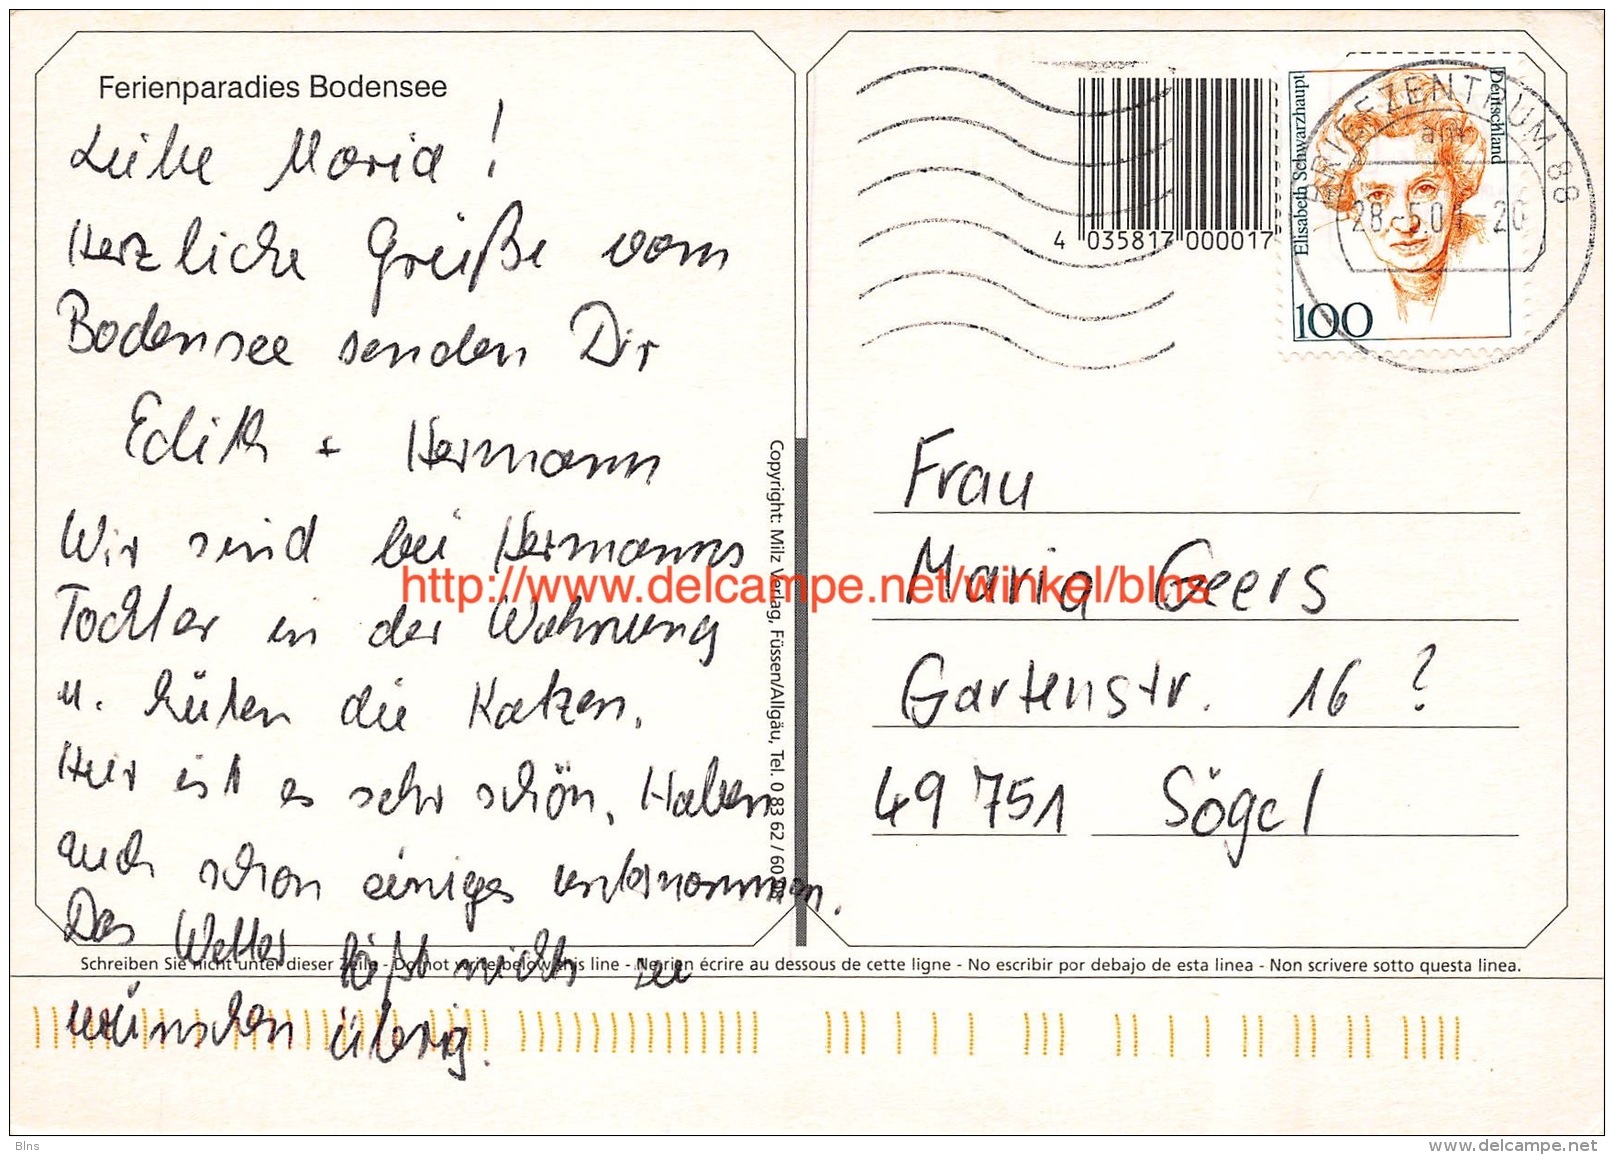 Ferienparadies Bodensee
Liebe Maria!
Herzliche Grüße vom
Bodensee senden Dir
Edith + Hermann
Wir sind bei Hermanns
Tochter in der Wohnung
u. hüten die Katzen.
Hier ist es sehr schön. Haben
auch schon einiges unternommen.
Das Wetter läßt nichts zu
wünschen übrig.
Schreiben Sie nicht unter dieser Zeile - Do not write below this line - Ne rien écrire au dessous de cette ligne - No escribir por debajo de esta linea - Non scrivere sotto questa linea.
Copyright: Milz Verlag, Füssen/Allgäu, Tel. 0 83 62 / 60
4 035817 000017
Elisabeth Schwarzhaupt
Deutschland
100
BRIEFZENTRUM 88
28.-5.01-20
Frau
Maria Geers
Gartenstr. 16 ?
49751 Sögel
http://www.delcampe.net/winkel/blns
Blns
www.delcampe.net